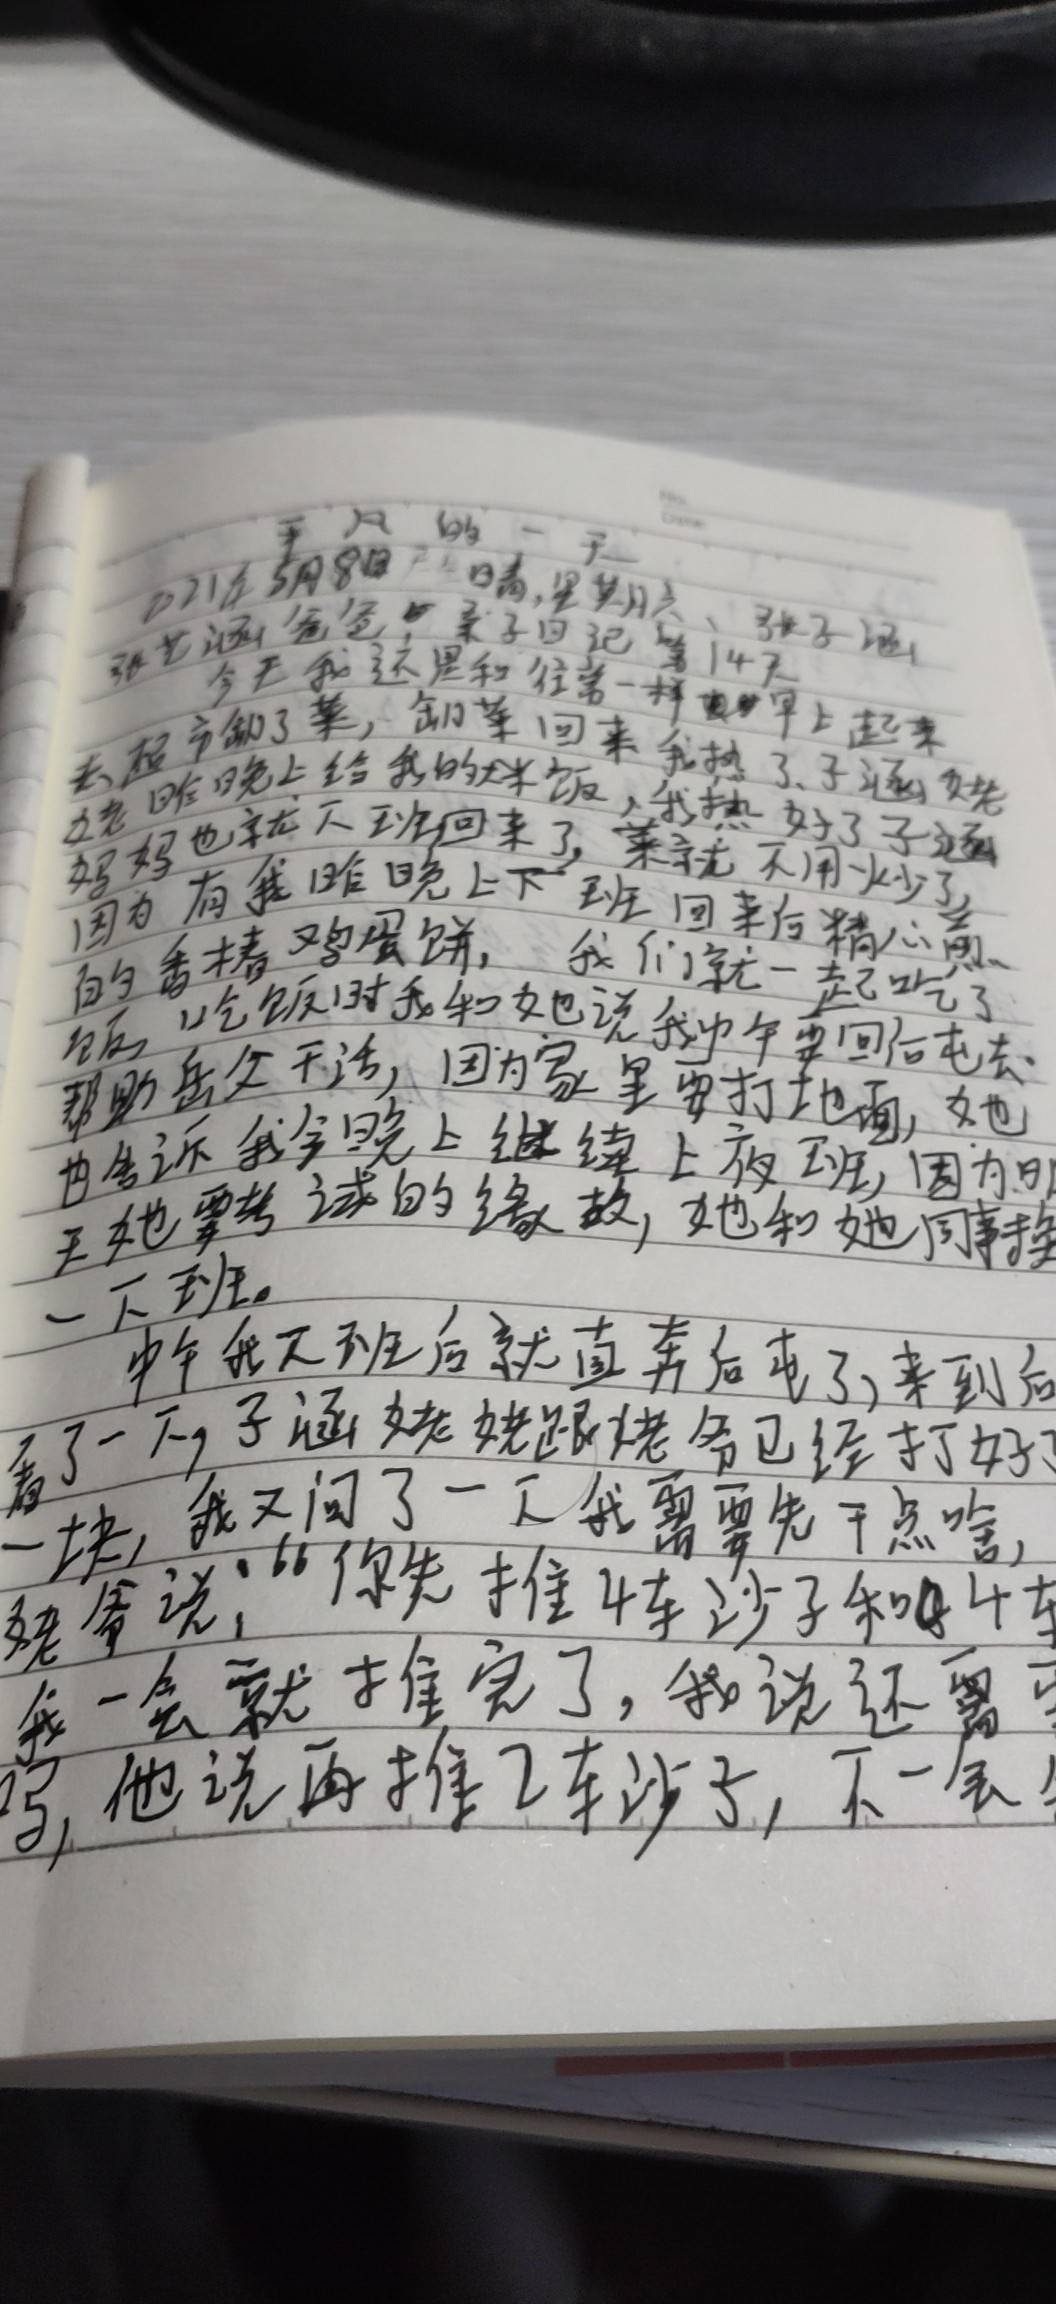 平凡的一天
2021年5月8日 晴,星期六、张子涵
张艺涵爸爸,亲子日记第14天
今天我还是和往常一样早上起来
去超市卸了菜,卸菜回来我热了子涵姥
姥昨晚上给我的米饭,我热好了子涵
妈妈也就下班回来了,菜就不用炒了,
因为有我昨晚上下班回来后精心煎
的香椿鸡蛋饼,我们就一起吃了
饭,吃饭时我和她说我中午要回后屯去
帮助岳父干活,因为家里要打地面,她
也告诉我今晚上继续上夜班,因为明
天她要考试的缘故,她和她同事换
一下班。
中午我下班后就直奔后屯了,来到后
看了一下,子涵姥姥跟姥爷已经打好了
一块,我又问了一下我需要先干点啥,
姥爷说:“你先推4车沙子和4车
我一会就推完了,我说还需要
吗,他说再推2车沙子,不一会